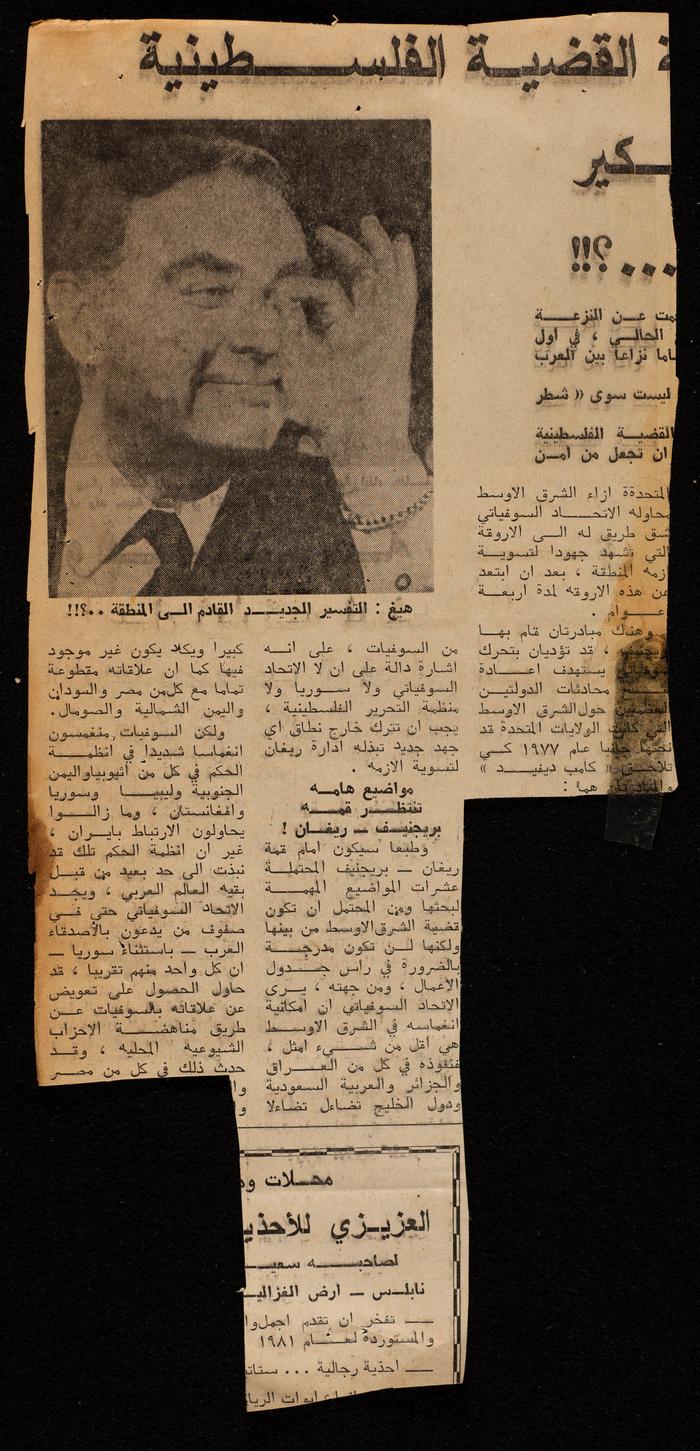 ة القضية الفلسطينية
ـكير
...؟!!
مت عن النزعة
الحالي ، في اول
اما نزاعا بين العرب
ليست سوى (( شطر
القضية الفلسطينية
ان تجعل من امن
المتحدة ازاء الشرق الاوسط
محاوله الاتحاد السوفياتي
شق طريق له الى الاروقة
التي تشهد جهودا لتسوية
ازمه المنطقة ، بعد ان ابتعد
عن هذه الاروقه لمدة اربعة
عوام .
وهنك مبادرتان قام بها
بريجنيف ، قد تؤديان بتحرك
يستهدف اعادة
محادثات الدولتين
حول الشرق الاوسط
التي كانت الولايات المتحدة قد
نحتها جانبا عام ١٩٧٧ كي
« كامب ديفيد »
والمبادرتان هما :
هيغ : التفسير الجديد القادم الى المنطقة ..؟!!
من السوفيات ، على انه
اشارة دالة على ان لا الاتحاد
السوفياتي ولا سوريا ولا
منظمة التحرير الفلسطينية ،
يجب ان تترك خارج نطاق اي
جهد جديد تبذله ادارة ريغان
لتسوية الازمه .
مواضيع هامه
تنتظر قمه
بريجنيف ـ ريغان !
وطبعا سيكون امام قمة
ريغان ـ بريجنيف المحتملة
عشرات المواضيع المهمة
لبحثها ومن المحتمل ان تكون
قضية الشرق الاوسط من بينها
ولكنها لن تكون مدرجة
بالضرورة في راس جدول
الاعمال ، ومن جهته ، يرى
الاتحاد السوفياتي ان امكانية
انغماسه في الشرق الاوسط
هي أقل من شيء امثل ،
فنفوذه في كل من العراق
والجزائر والعربية السعودية
ودول الخليج تضاءل تضاءلا
كبيرا ويكاد يكون غير موجود
فيها كما ان علاقاته مقطوعة
تماما مع كل من مصر والسودان
واليمن الشمالية والصومال.
ولكن السوفيات منغمسون
انغماسا شديدا في انظمة
الحكم في كل من اثيوبيا واليمن
الجنوبية وليبيا وسوريا
وافغانستان ، وما زالوا
يحاولون الارتباط بايران ،
غير ان انظمة الحكم تلك قد
نبذت الى حد بعيد من قبل
بقيه العالم العربي ، ويجد
الاتحاد السوفياتي حتى في
صفوف من يدعون بالأصدقاء
العرب ـ باستثناء سوريا ـ
ان كل واحد منهم تقريبا ، قد
حاول الحصول على تعويض
عن علاقاته بالسوفيات عن
طريق مناهضة الاحزاب
الشيوعيه المحليه ، وقد
حدث ذلك في كل من مصر
وا
و
محلات وم
العزيزي للأحذي
لصاحبه سعيـ
نابلس ـ ارض الغزاليـ
ـ تفخر ان تقدم اجمل وا
والمستوردة لعام ١٩٨١
ـ احذية رجالية ... ستاتيـ